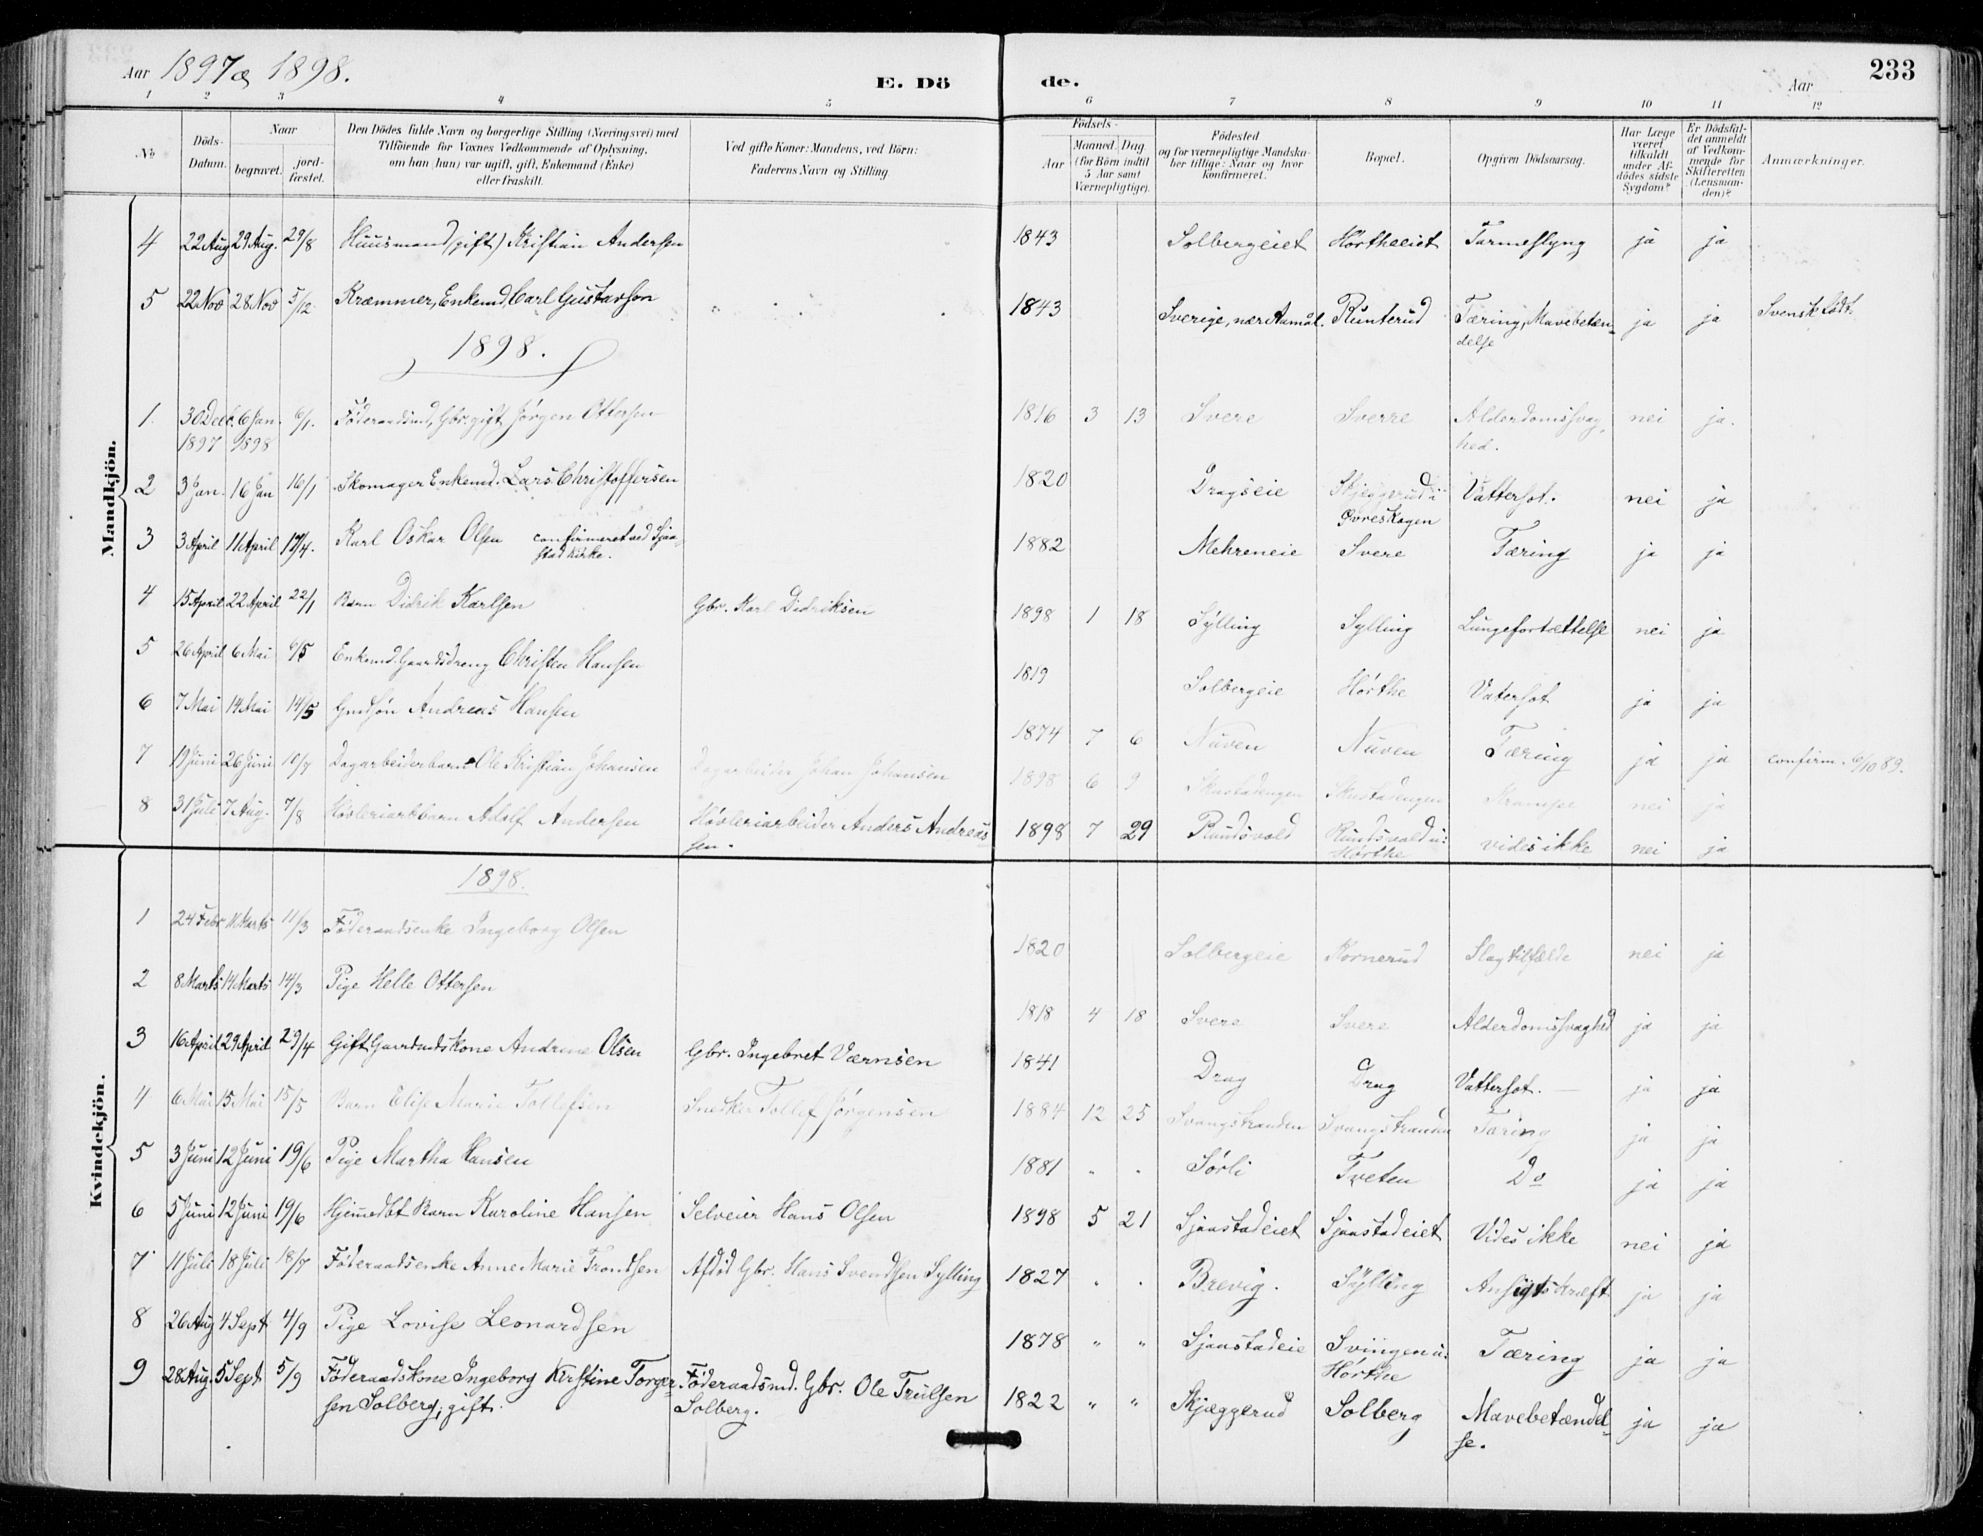 Aar 1897 og 1898. E. Dö de. Aar 233
1 2 3 4 5 6 7 8 9 10 11 12
No Döds-Datum. Naar begravet. jord-fæstet. Den Dödes fulde Navn og borgerlige Stilling (Næringsvei) med Tilföiende for Voxnes Vedkommende af Oplysning, om han (hun) var ugift, gift, Enkemand (Enke) eller fraskilt. Ved gifte Koner: Mandens, ved Börn: Faderens Navn og Stilling. Födsels- Aar Maaned. Dag. (for Börn indtil 5 Aar samt Værnepligtige). Födested og for værnepligtige Mandskaber tillige: Naar og hvor konfirmeret. Bopæl. Opgiven Dödsaarsag. Har Læge været tilkaldt under Afdödes sidste Sygdom? Er Dödsfaldet anmeldt af Vedkommende for Skifteretten (Lensmanden)? Anmærkninger.
Mandkjön.
4 22 Aug 29 Aug. 29/8 Huusmand (gift) Kristian Andersen 1843 Solbergeiet Hörtheeiet Tarmeslyng ja ja
5 22 Nov 28 Nov 5/12 Kræmmer, Enkemd, Carl Gustavson 1843 Sverige, nær Aamål. Runterud Tæring, Mavebetæn- ja ja Svensk född.
delse
1898.
1 30 Dec. 6 Jan. 6/1. Föderaadsmd, Gbr. gift Jørgen Ottersen 1816 3 13 Svere Sverre Alderdomssvag- nei ja.
1897 1898 hed.
2 3 Jan. 16 Jan 16/1 Skomager Enkemd. Lars Christoffersen 1820 Dragseie Skjæggerud i Vattersot. nei ja
Øvreskogen
3 3 April 11 April 17/4. Karl Oskar Olsen confirmeret ved Sjaa- 1882 Mehreneie Svere Tæring ja ja
stad kirke.
4 15 April 22 April 22/1 Barn Didrik Karlsen Gbr. Karl Didriksen 1898 1 18 Sylling Sylling Lungefortættelse nei ja
5 26 April 6 Mai 6/5 Enkemd. Gaardsdreng Christen Hansen 1819 Solbergeie Hörthe Vatersot ja ja
6 7 Mai 14 Mai 14/5 Gmdsön Andreas Hansen 1874 7 6 Nuven Nuven Tæring ja ja confirm. 6/10 89.
7 19 Juni 26 Juni 10/7 Dagarbeiderbarn Ole Kristian Johansen Dagarbeider Johan Johansen 1898 6 9 Skustadengen Skustadengen Krampe nei ja
8 31 Juli 7 Aug. 7/8 Hövleriarbbarn Adolf Andersen Hövleriarbeider Anders Andreas- 1898 7 29 Rundsvold Rundsvold u: vides ikke nei ja
sen. Hörthe
Kvindekjön.
1898.
1 24 Febr 11 Marts 11/3 Föderaadsenke Ingeborg Olsen 1820 Solbergeie Kornerud Slagtilfælde nei ja
2 8 Marts 14 Marts 14/3 Pige Helle Ottersen 1818 4 18 Svere Svere Alderdomssvaghed ja ja
3 16 April 29 April 29/4 Gift Gaardmdskone Andrine Olsen Gbr. Ingebret Værnsen 1841 Drag Drag Vattersot. — ja ja
4 6 Mai 15 Mai 15/5 Barn Elise Marie Tollefsen Snekker Tollef Jörgensen 1884 12 25 Svangstranden Svangstranden Tæring ja ja
5 3 Juni 12 Juni 19/6 Pige Martha Hansen 1881 " " Sörli Tveten Do ja ja
6 5 Juni 12 Juni 19/6 Hjemmedbt Barn Karoline Hansen Selveier Hans Olsen 1898 5 21 Sjaastadeiet Sjaastadeiet Vides ikke nei ja
7 11 Juli 18 Juli 18/7 Föderaadsenke Anne Marie Trondsen Afdöd Gbr. Hans Svendsen Sylling 1827 " " Brevig. Sylling Ansigtskræft ja ja
8 26 Aug 4 Sept 4/9 Pige Lovise Leonardsen 1878 " " Sjaastadeie Svingen u: Tæring ja ja
Hörthe
9 28 Aug. 5 Sept 5/9 Föderaadskone Ingeborg Kirstine Torger- Föderaadsmd. Gbr. Ole Trulsen 1822 " " Skjæggerud Solberg Mavebetændel- ja ja
sen Solberg, gift. Solberg. se.